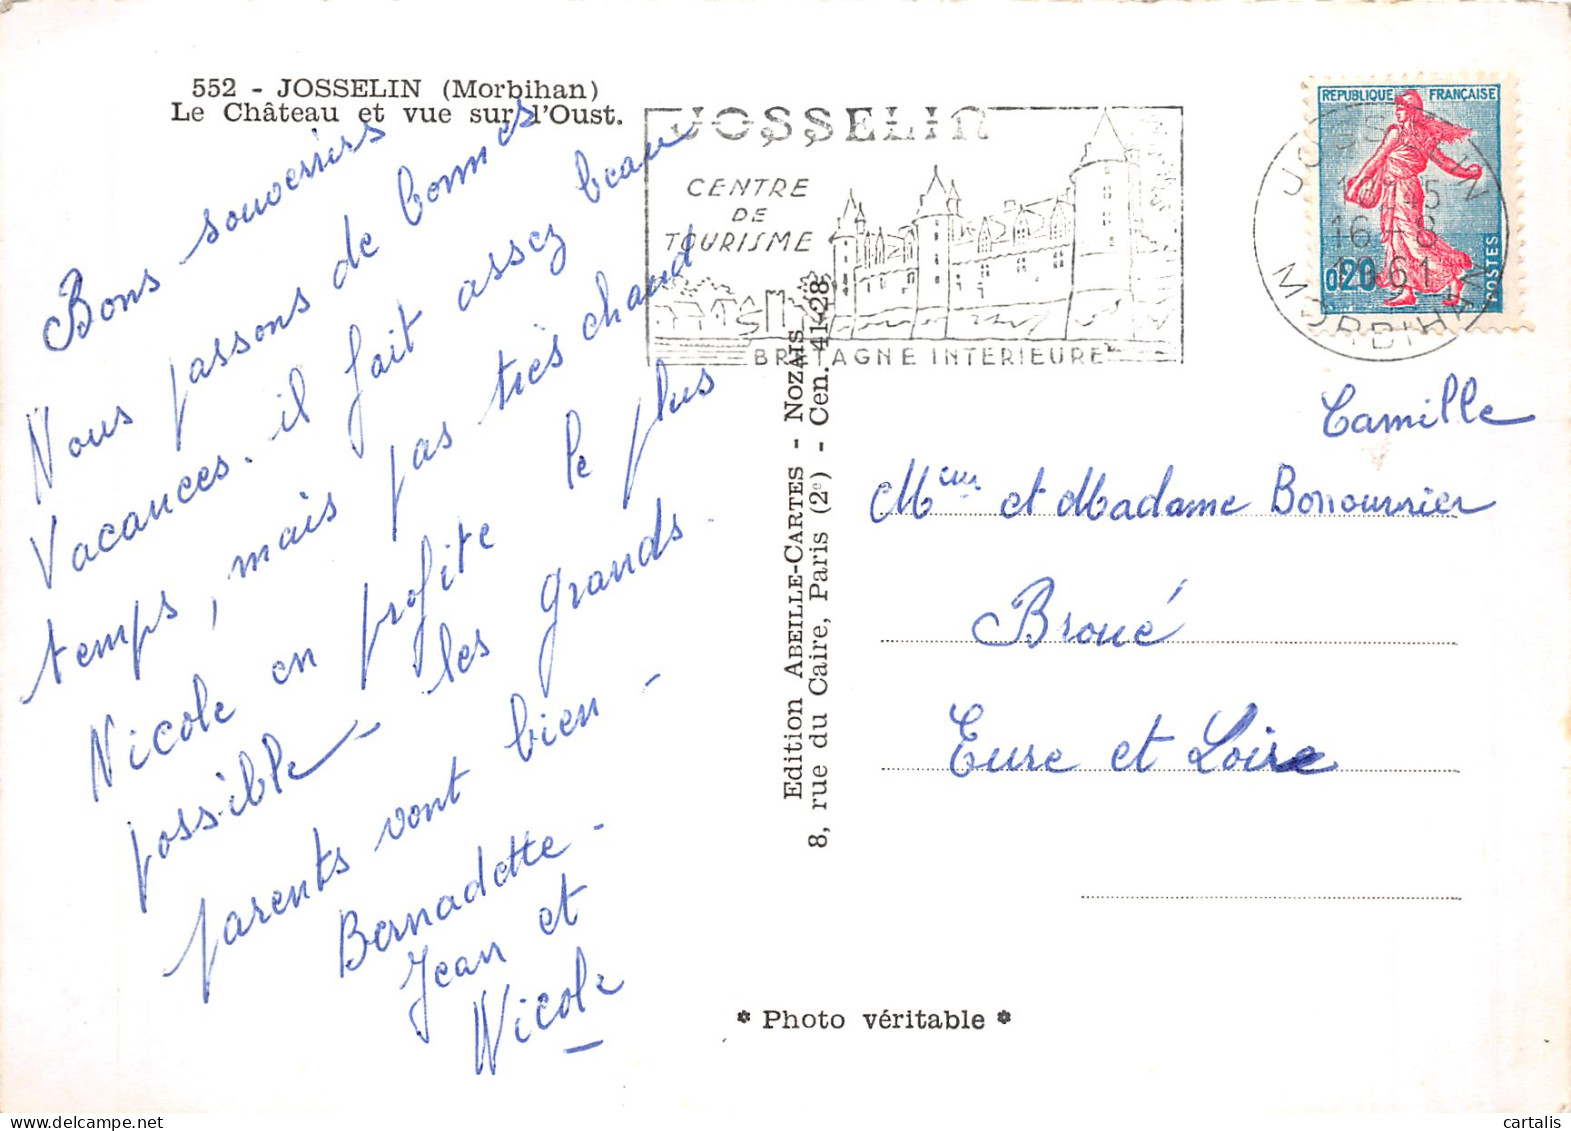 552 - JOSSELIN (Morbihan)
Le Château et vue sur l'Oust.
Bons souvenirs
Nous passons de bonnes
Vacances. il fait assez beau
temps, mais pas très chaud
Nicole en profite le plus
possible - les grands.
parents vont bien -
Bernadette -
Jean et
Nicole
JOSSELIN
CENTRE
DE
TOURISME
BRETAGNE INTERIEURE
REPUBLIQUE FRANÇAISE
0,20
POSTES
JOSSELIN
16 - 8
1961
MORBIHAN
Edition ABEILLE-CARTES - NOZAIS
8, rue du Caire, Paris (2e) - Cen. 41-28
Camille
et Madame
Broué
Eure et Loire
* Photo véritable *
cartalis